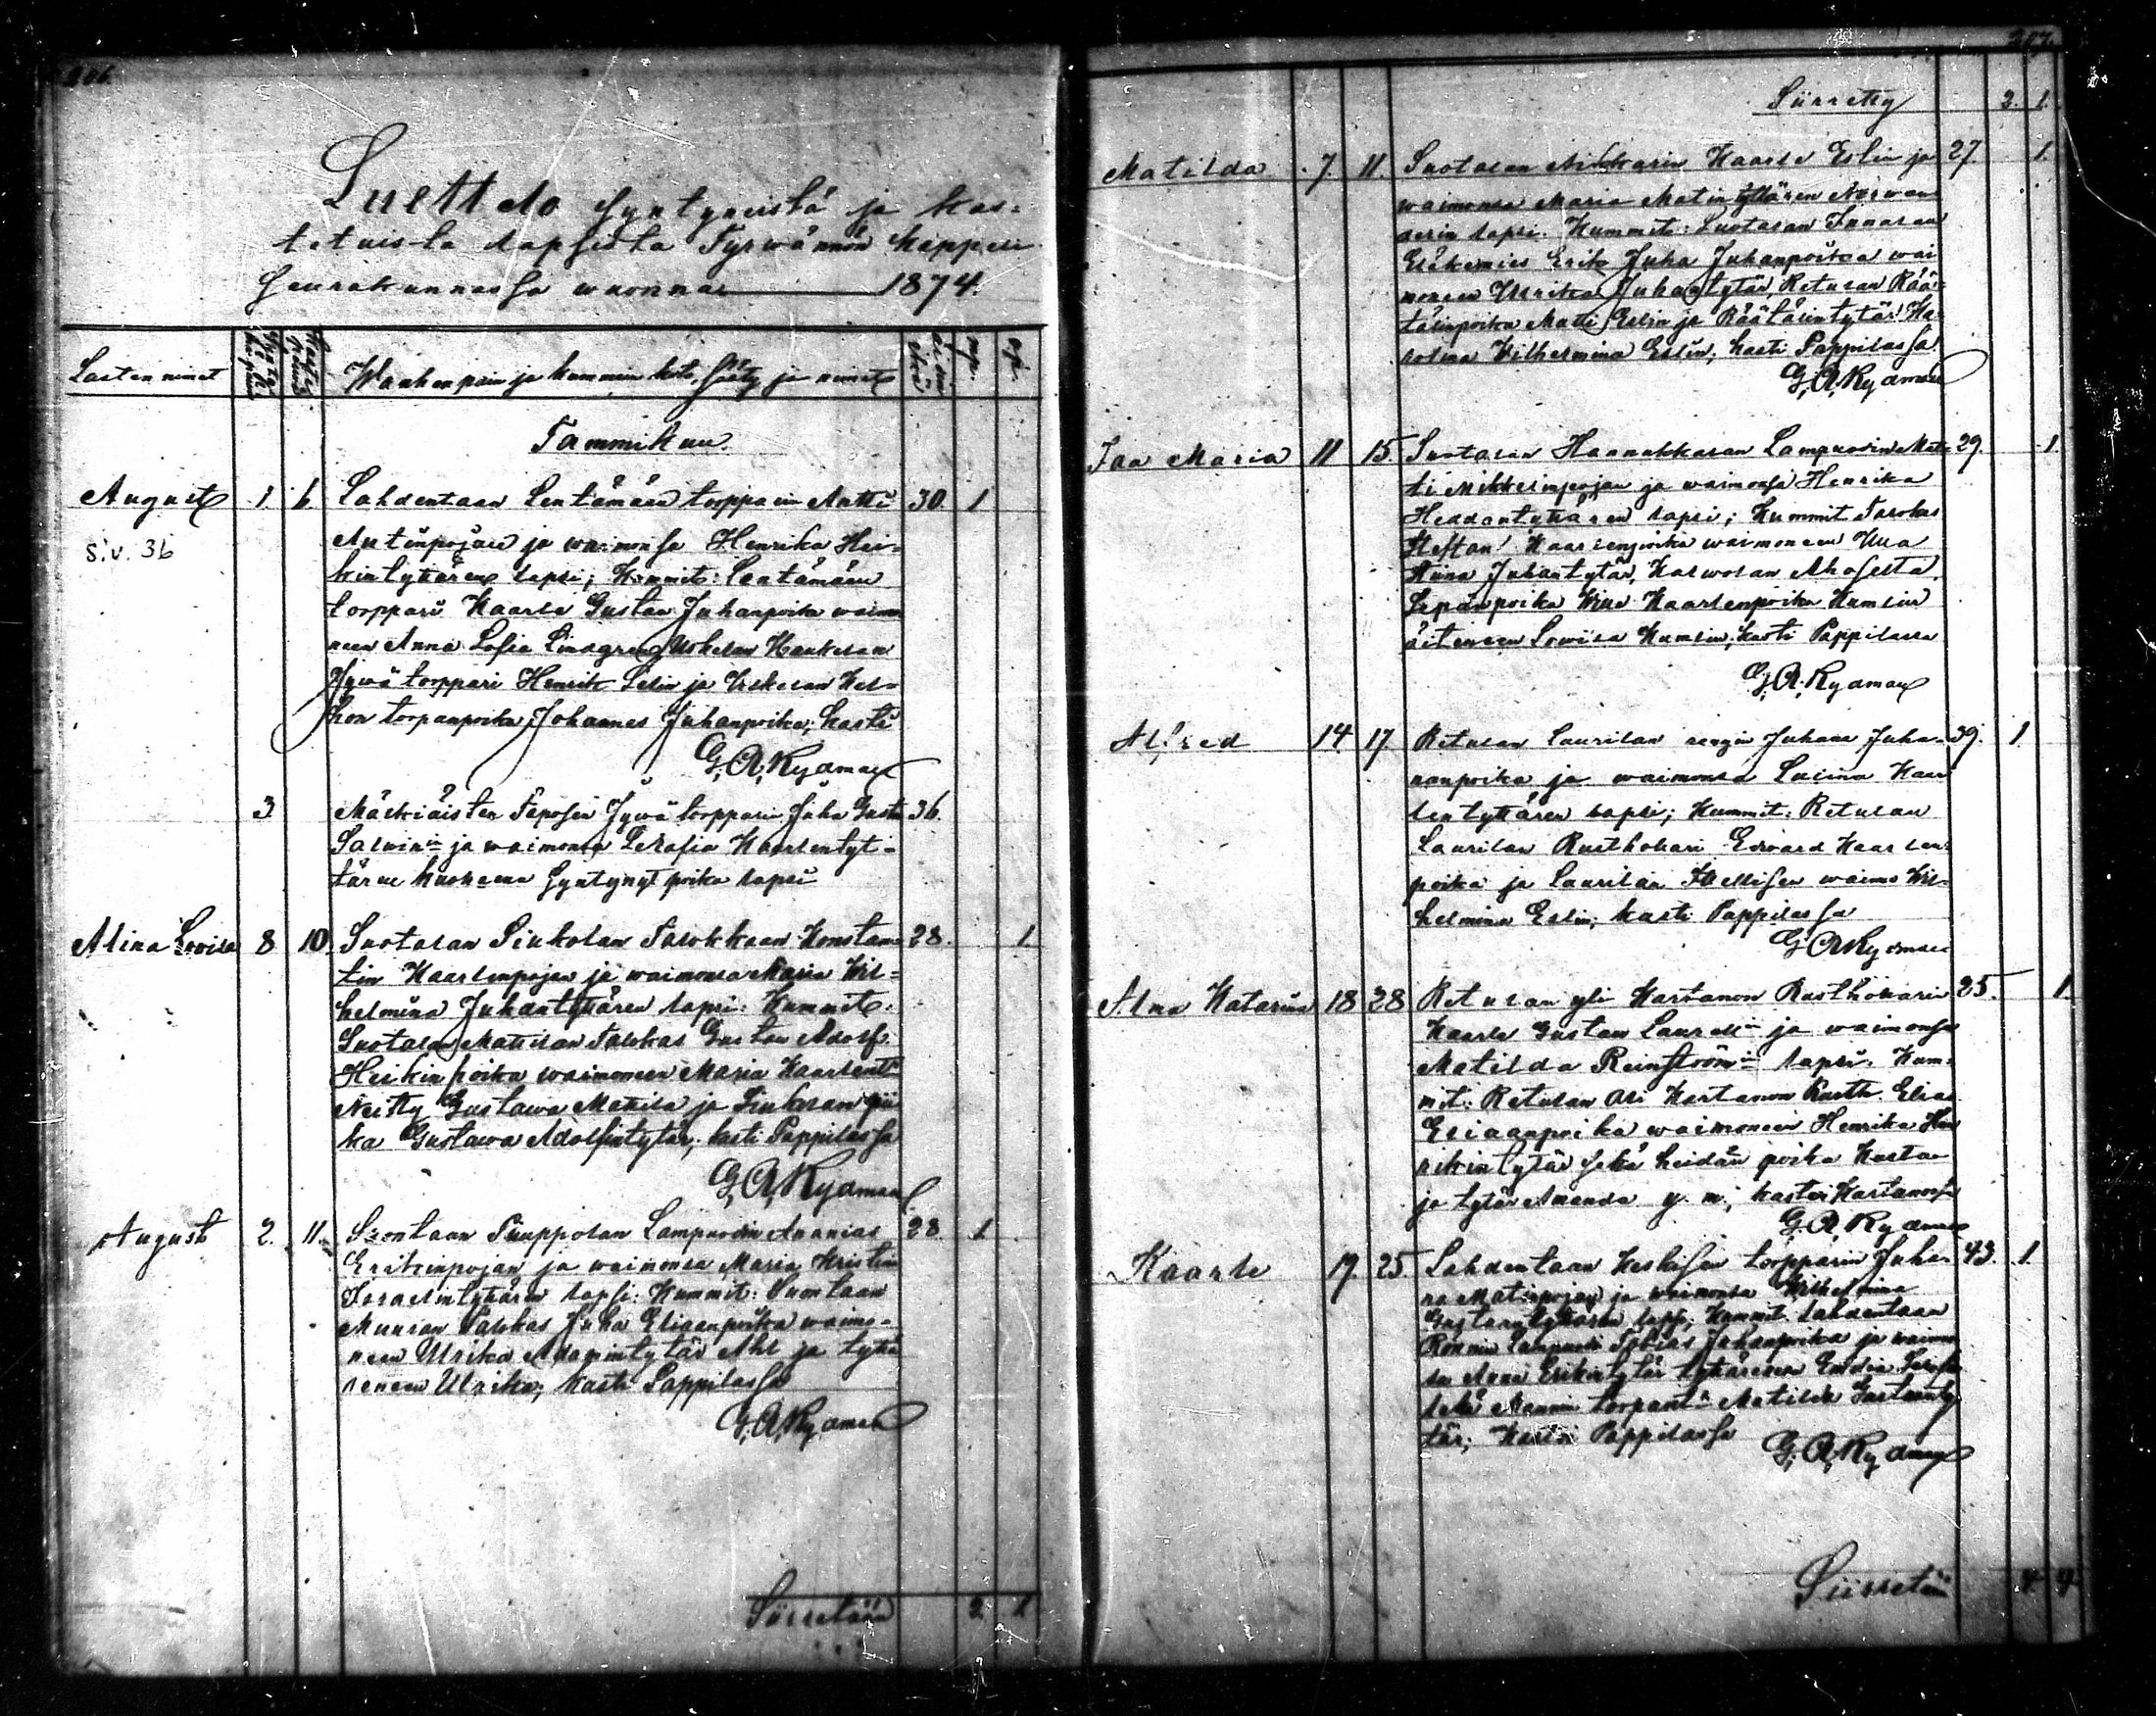 206.
Luettelo syntyneistä ja kas-
tetuista lapsista Tyrwännön kappeli
seurakunnassa wuonna 1874.
Lasten nimet
Wanhempain ja kummin koto, sääty ja nimet
mp. wp.
Tammikuu.
August 1. 6. Lahdentaan Lentämäen torpparin Antti 30. 1
s.v. 36
Antinpojan ja waimonsa Henrika Hei-
kintyttären lapsi; Kummit: Lentämäen
torppari Kaarle Gustaa Juhanpoika waimo
neen Anna Sofia Lindgren, Uskelan Haukelan
Jywä torppari Henrik Selin ja Uskelan Kel-
hon torpanpoika Johannes Juhanpoika; kasti
G. A. Rydman
3. Mälkiäisten Taposen Jywä torpparin Juha Gusta 36.
Salwin ja waimonsa Serafia Kaarlentyt-
tären kuolleena syntynyt poika lapsi
Alina Lovisa 8 10. Suotalan Sinkolan Talokkaan Konstan- 28. 1
tin Kaarlenpojan ja waimonsa Maria Wil-
helmina Juhantyttären lapsi: Kummit:
Suotalan Mattilan Talokas Gustaa Adolf
Heikinpoika waimoneen Maria Kaarlent
Neitty Gustawa Mattila ja Sinkolan pii
ka Gustawa Adolfintytär; kasti Pappilassa
G. A. Rydman
August 2. 11. Suontaan Piuppolan Lampuodin Ananias 28. 1
Erikinpojan ja waimonsa Maria Kristina
Israelintyttären lapsi: Kummit: Suontaan
Muuran Talokas Juha Eliaanpoika waimo-
neen Ulrika Adamintytär Ahl ja tyttä
reneen Ulrika; kasti Pappilassa
G. A. Rydman
Siirretään 2. 1
207.
Siirretty 2. 1.
Matilda 7. 11. Suotalan Nikkarin Kaarle Eslin ja 27. 1.
waimonsa Maria Matintyttären
lapsi. Kummit: Suotalan
Eläkemies Erik Juha Juhanpoika wai
moneen Ulrika Juhantytär, Retulan Rää-
tälinpoika Matti Eslin ja Räätälintytär Ka
rolina Wilhelmina Eslin; kasti Pappilassa
G. A. Rydman
Ida Maria 11 15. Suotalan Hannukkalan Lampuodin Mat- 29. 1
ti Mikkelinpojan ja waimonsa Henrika
lapsi; Kummit Talokas
Steffan Kaarlenpoika waimoneen Ulla
Stiina Juhantytär,
Sepänpoika Wille Kaarlenpoika Kumlin
äiteneen Lowiisa Kumlin; kasti Pappilassa
G. A. Rydman
Alfred 14 17. Retulan Laurilan rengin Juhana Juha- 39. 1.
nanpoika ja waimonsa Kaar
lentyttären lapsi; Kummit: Retulan
Laurilan Rusthollari Edward Kaarlen-
poika ja Laurilan Itsellisen waimo Wil-
helmina Eslin; kasti Pappilassa
G. A. Rydman
Alma Katarina 18 28 Retulan yli Kartanon Rusthollarin 25. 1.
Kaarle Gustaa Laurell ja waimonsa
Matilda Reinström lapsi. Kum-
mit: Retulan ali Kartanon Rusth. Elias
Eliaanpoika waimoneen Henrika Hen
rikintytär sekä heidän poika Kustaa
ja tytär Amanda y. m.; kastoi Kartanossa
G. A. Rydman
Kaarle 19. 25. Lahdentaan Keskisen torpparin Juha- 43. 1.
na Matinpojan ja waimonsa Wilhelmina
Gustawityttären lapsi; Kummit: Lahdentaan
Rönnin Lampuodi Tobias Juhanpoika ja waimon
sa Anna Erikintytär tyttäreneen
sekä torpant. Matilda Gustawinty
tär; kastoi Pappilassa
G. A. Rydman
Siirretään 4. 4